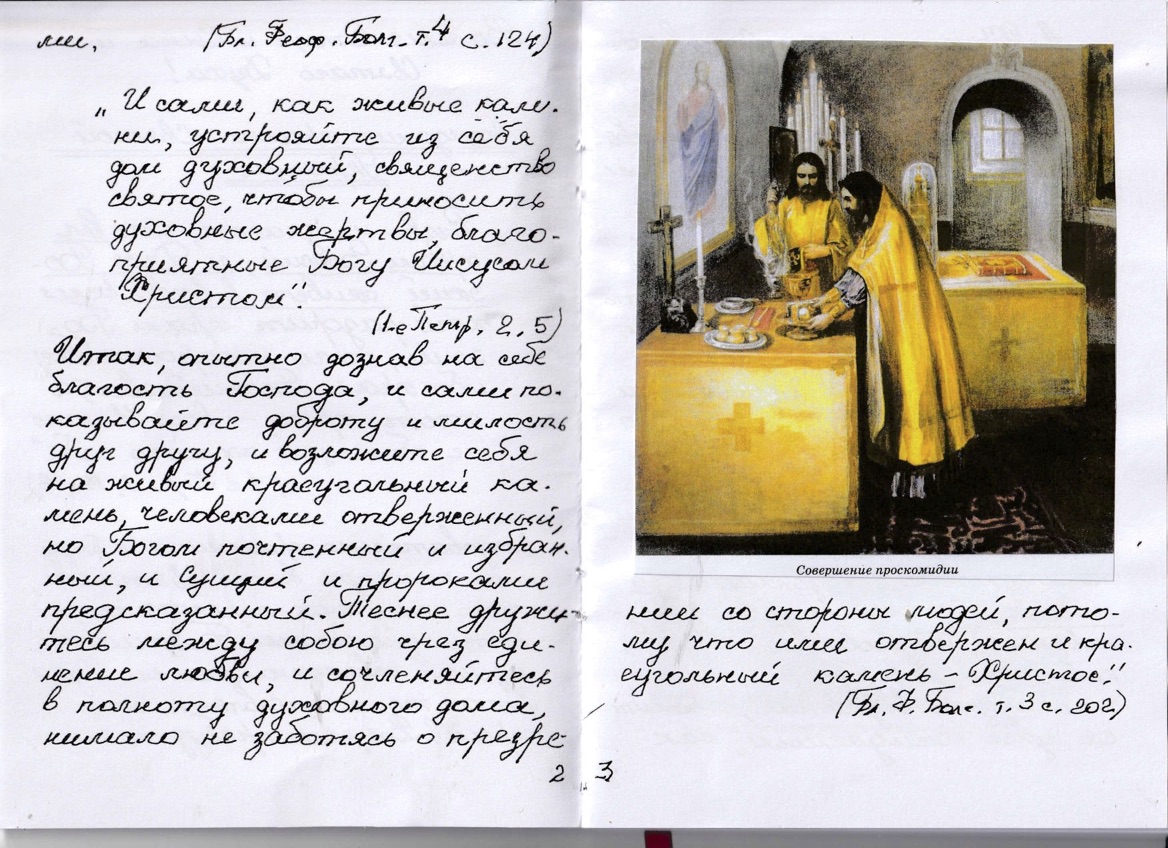 ми. (Бл. Феоф. Болг. т. 4 с. 124)
„И сами, как живые кам-
ни, устрояйте из себя
дом духовный, священство
святое, чтобы приносить
духовные жертвы, благо-
приятные Богу Иисусом
Христом".
(1-е Петр. 2, 5)
Итак, опытно дознав на себе
благость Господа, и сами по-
казывайте доброту и милость
друг другу, и возложите себя
на живый краеугольный ка-
мень, человеками отверженный,
но Богом почтенный и избран-
ный, и Сущий и пророками
предсказанный. Теснее дружи-
тесь между собою чрез еди-
нение любви, и сочленяйтесь
в полноту духовного дома,
нимало не заботясь о презре-
2
Совершение проскомидии
нии со стороны людей, пото-
му что ими отвержен и кра-
еугольный камень – Христос".
(Бл. Ф. Болг. т. 3 с. 202)
3